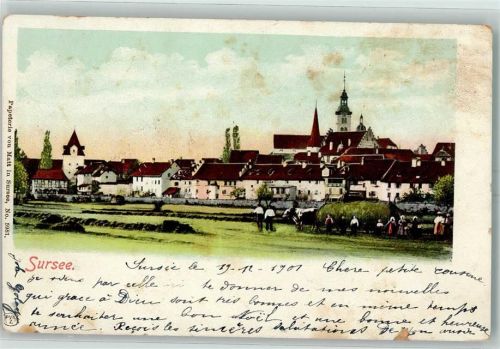 Papeterie von Matt in Sursee, No. 5931.
Sursee.
Sursée le 19-12-1901 Chère petite cousine
je viens par celle ci te donner de mes nouvelles
qui grace à Dieu sont très bonnes et en même temps
te souhaiter une bon Noël et une bonne et heureuse
année. Reçois les sincères salutations de ton